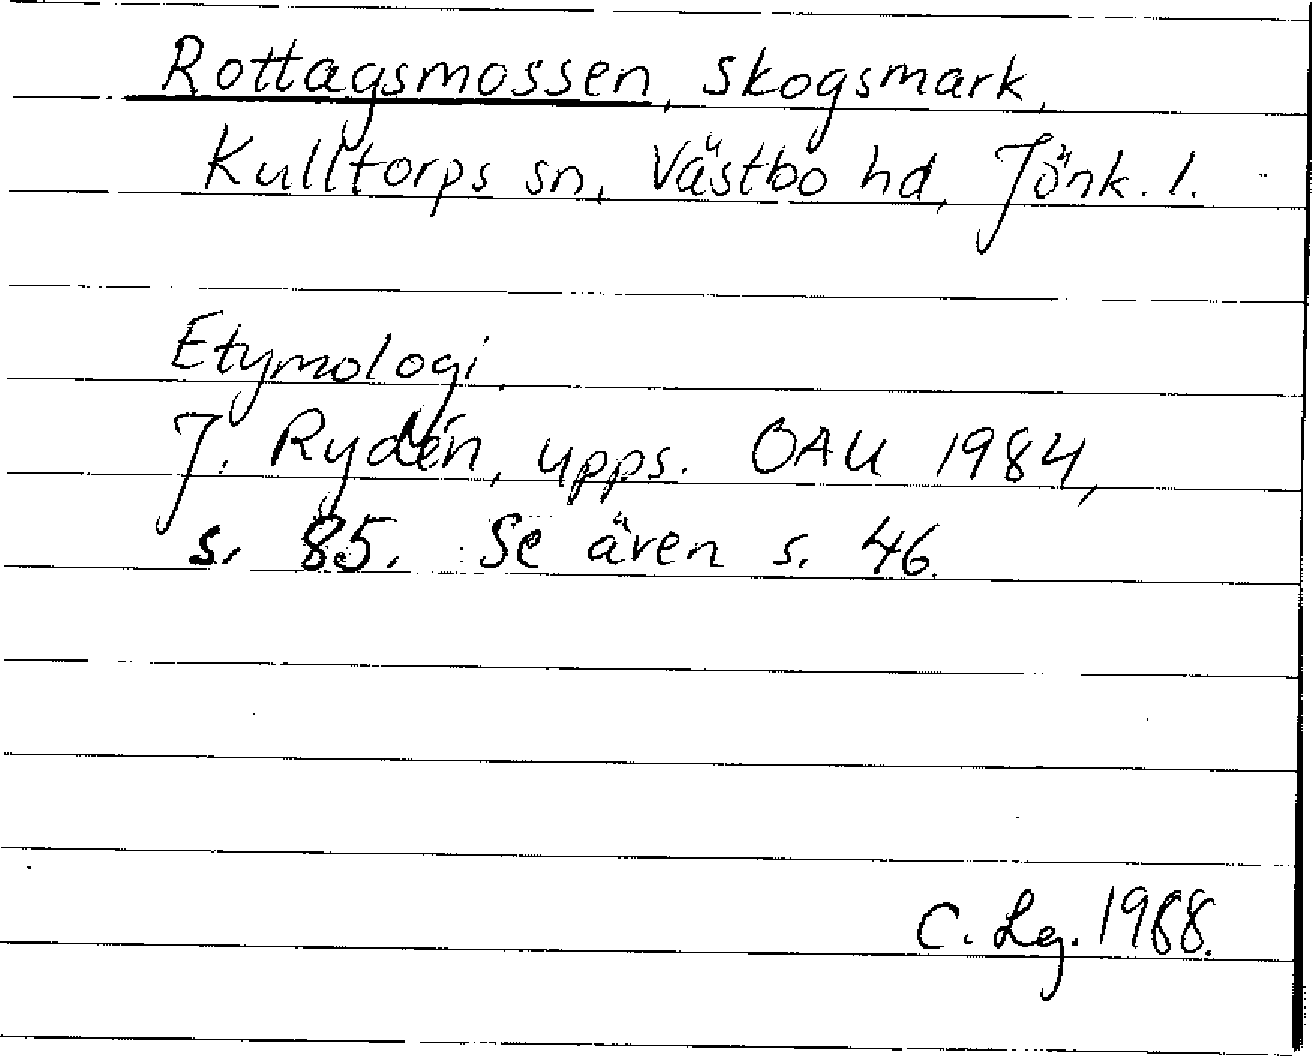 Rottagsmossen, skogsmark,
Kulltorps sn, Västbo hd, Jönk. l.
Etymologi.
J. Rydén, upps. OAU 1984,
s. 85. Se även s. 46.
C. Lg. 1988.